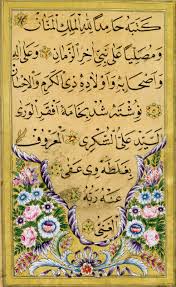 كتبه حامدا لله الملك المنان
ومصليا على نبي آخر الزمان وعلى آله
واصحابه واولاده ذي الكرم والاحسان
نوشته شد بخامة افقر الورى
السيد علي الشكري المعروف
عفى
عنه ربه